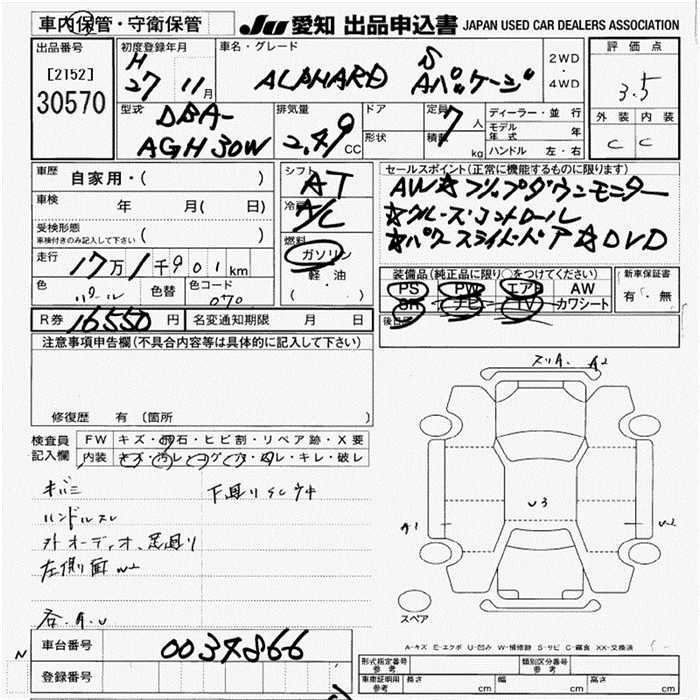 車内保管・守衛保管 JU 愛知 出品申込書 JAPAN USED CAR DEALERS ASSOCIATION
出品番号
[2152]
30570
初度登録年月
H 27 11月
車名・グレード
ALPHARD S Aパッケージ
2WD
・
4WD
評価点
3.5
外装 内装
C C
型式
DBA-
AGH30W
排気量
2.49 CC
ドア
形状
定員 7人
積載 kg
ディーラー・並行
モデル年式 年
ハンドル 左・右
車歴 自家用・( )
車検 年 月( 日)
受検形態
車検付きのみ記入して下さい ( )
走行 17万1千901km
色 パール 色替 色コード 070
シフト AT
冷房 A/C
燃料
ガソリン
軽・油
( )
セールスポイント(正常に機能するものに限ります)
AW☆フリップダウンモニター
☆クルーズコントロール
☆パワースライドドア☆DVD
装備品(純正品に限り○をつけてください)
PS PW エアB AW
SR ナビ TV カワシート
新車保証書
有・無
後日
R券 16550円 名変通知期限 月 日
注意事項申告欄(不具合内容等は具体的に記入して下さい)
修復歴 有 (箇所 )
検査員
記入欄
FW キズ・飛石・ヒビ割・リペア跡・X要
内装 キズ・汚レ・コゲ・穴・切レ・キレ・破レ
キバミ
下廻りサビ
ハンドルスレ
外オーディオ、足廻り
左側面W2
各.A.U
スリA. A2
A1
U3
W2
スペア
A-キズ E-エクボ U-凹み W-補修跡 S-サビ C-腐食 XX-交換済
N
車台番号 0034866
登録番号
形式指定番号
参考
類別区分番号
参考
車庫証明用
参考
長さ cm 幅 cm 高さ cm